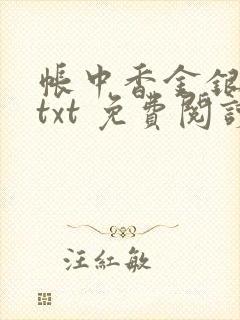 帳中香金銀
txt 免費閱讀
汪紅敏